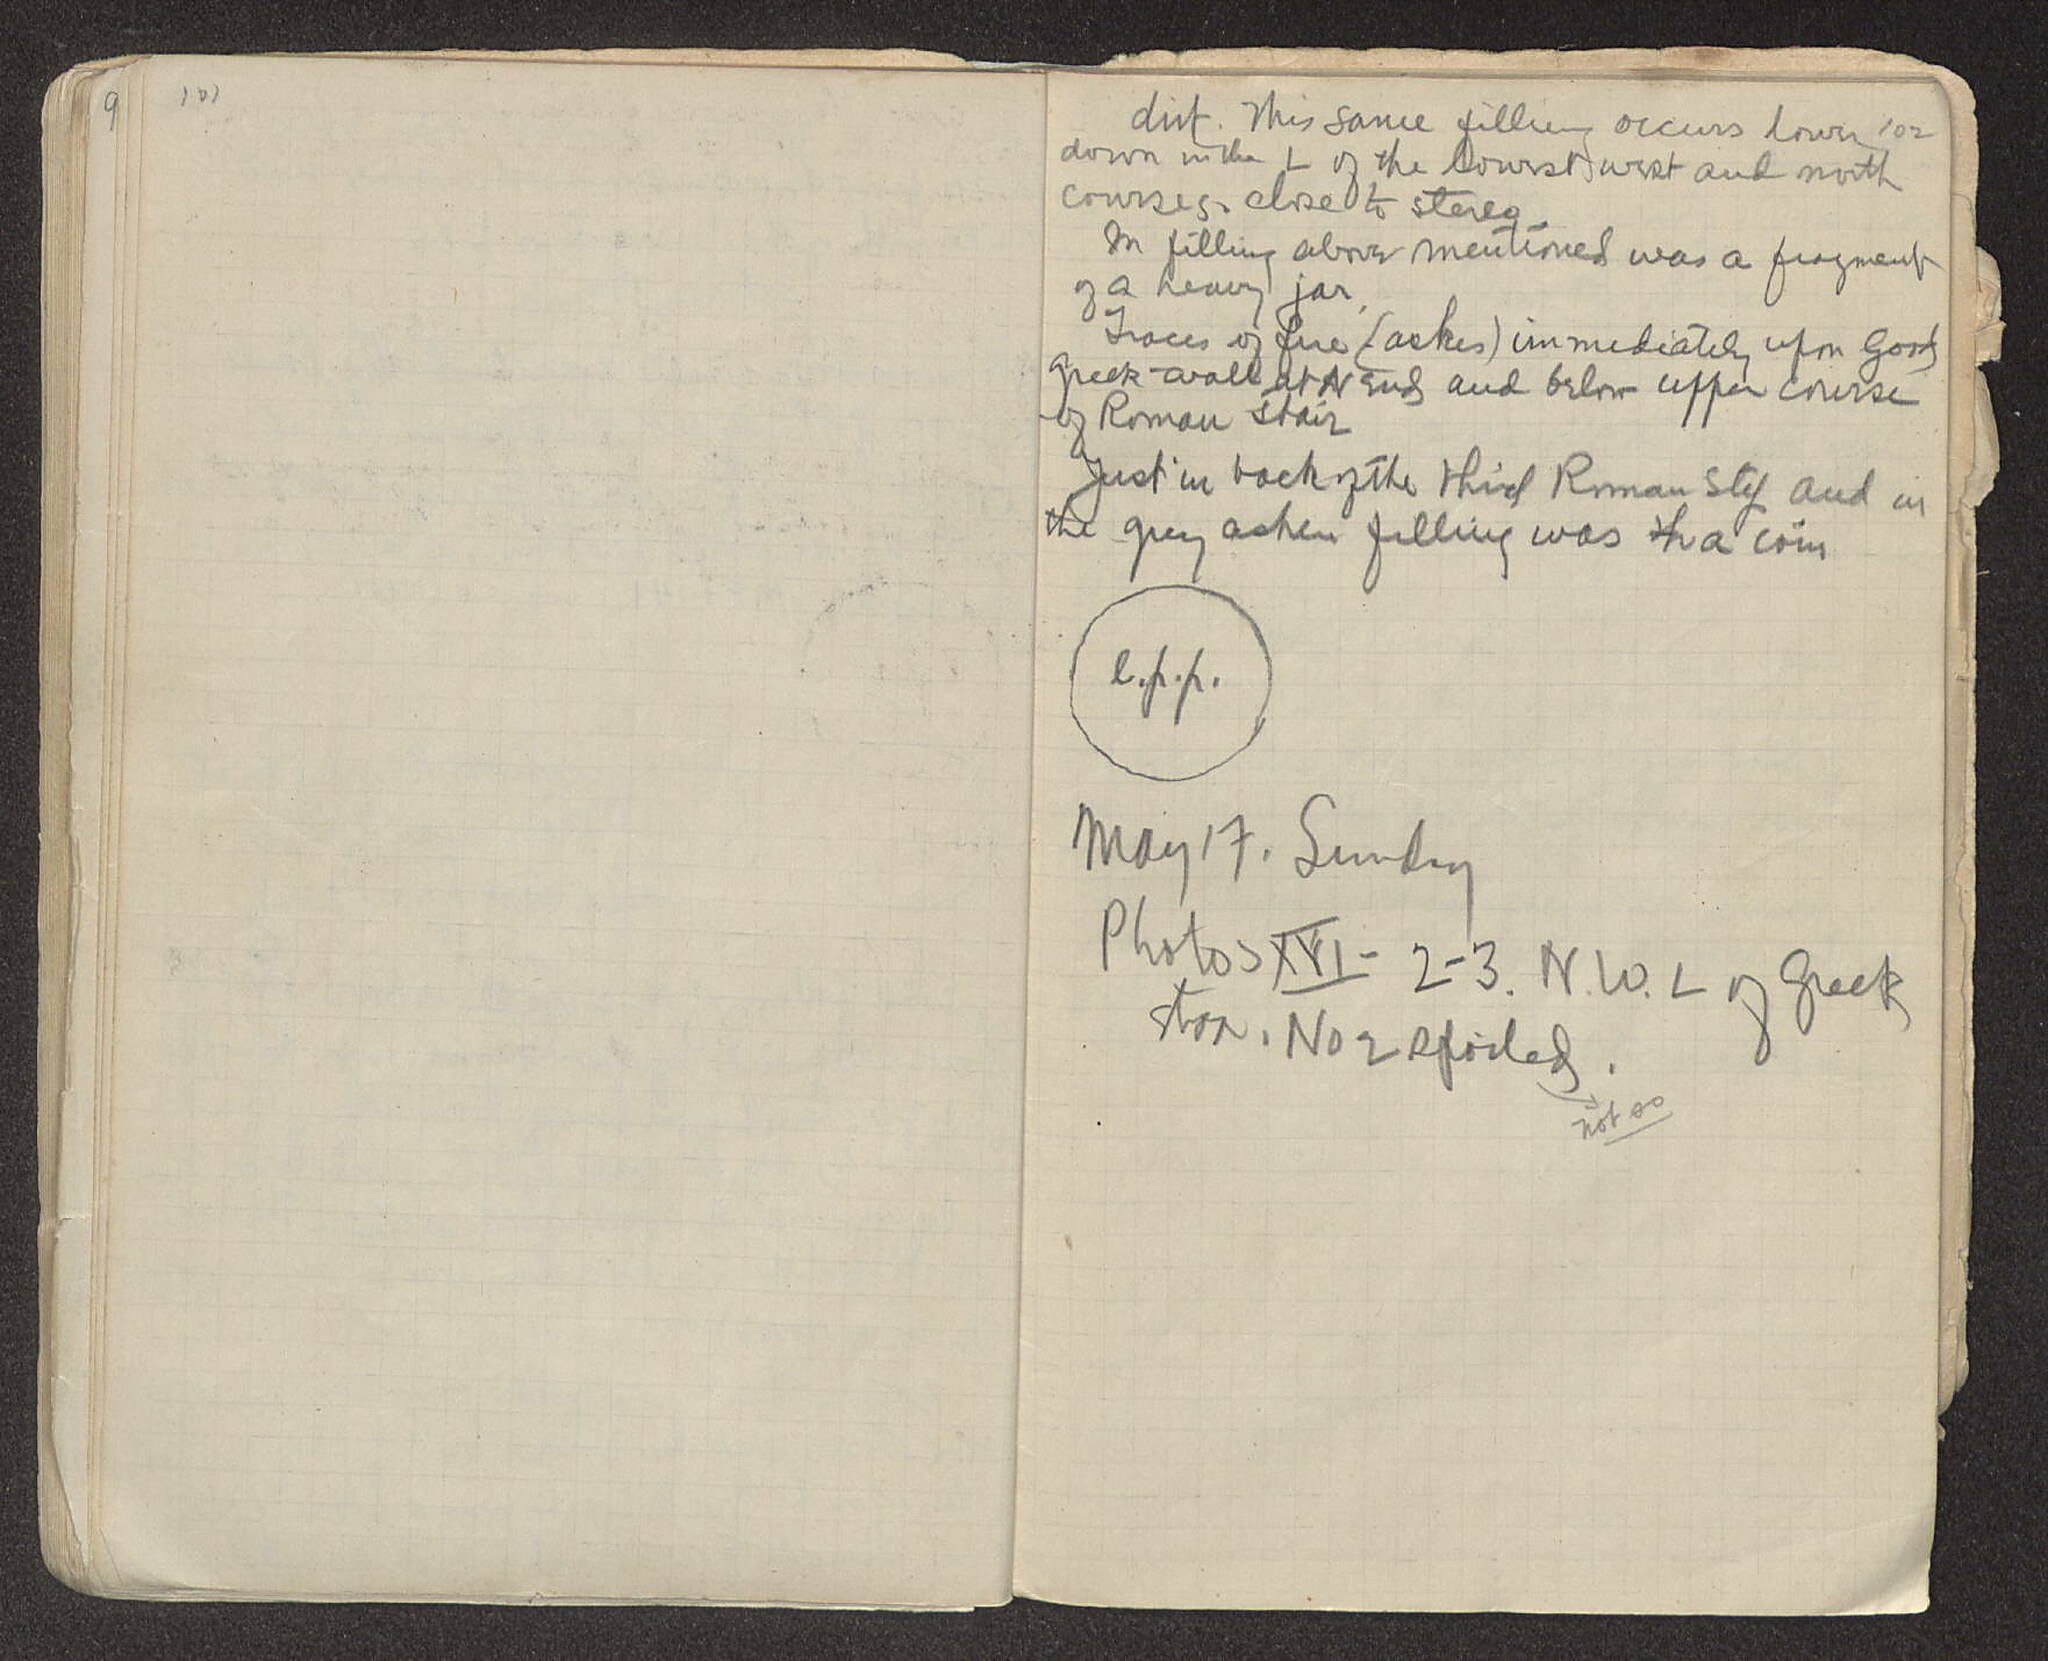 9
101
102
dirt. This same filling occurs lower
down in the L of the lowest west and north
courses close to stereo.
In filling above mentioned was a fragment
of a heavy jar.
Traces of fire (ashes) immediately upon Good
Greek wall at N End and below upper course
of Roman stair
Just in back of the third Roman step and in
the grey ashen filling was a coin
l.p.p.
May 17. Sunday
Photos XVI - 2-3. N.W. L of Greek
stoa. No 2 spoiled.
not so